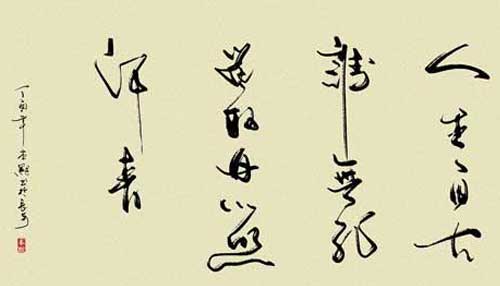 人生自古
誰無死
留取丹心照
汗青
丁酉年